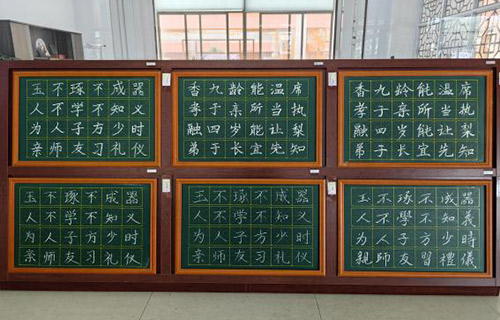 玉不琢不成器
人不学不知义
为人子方少时
亲师友习礼仪
香九龄能温席
孝于亲所当执
融四岁能让梨
弟于长宜先知
香九龄能温席
孝于亲所当执
融四岁能让梨
弟于长宜先知
玉不琢不成器
人不学不知义
为人子方少时
亲师友习礼仪
玉不琢不成器
人不学不知义
为人子方少时
亲师友习礼仪
玉不琢不成器
人不學不知義
為人子方少時
親師友習禮儀